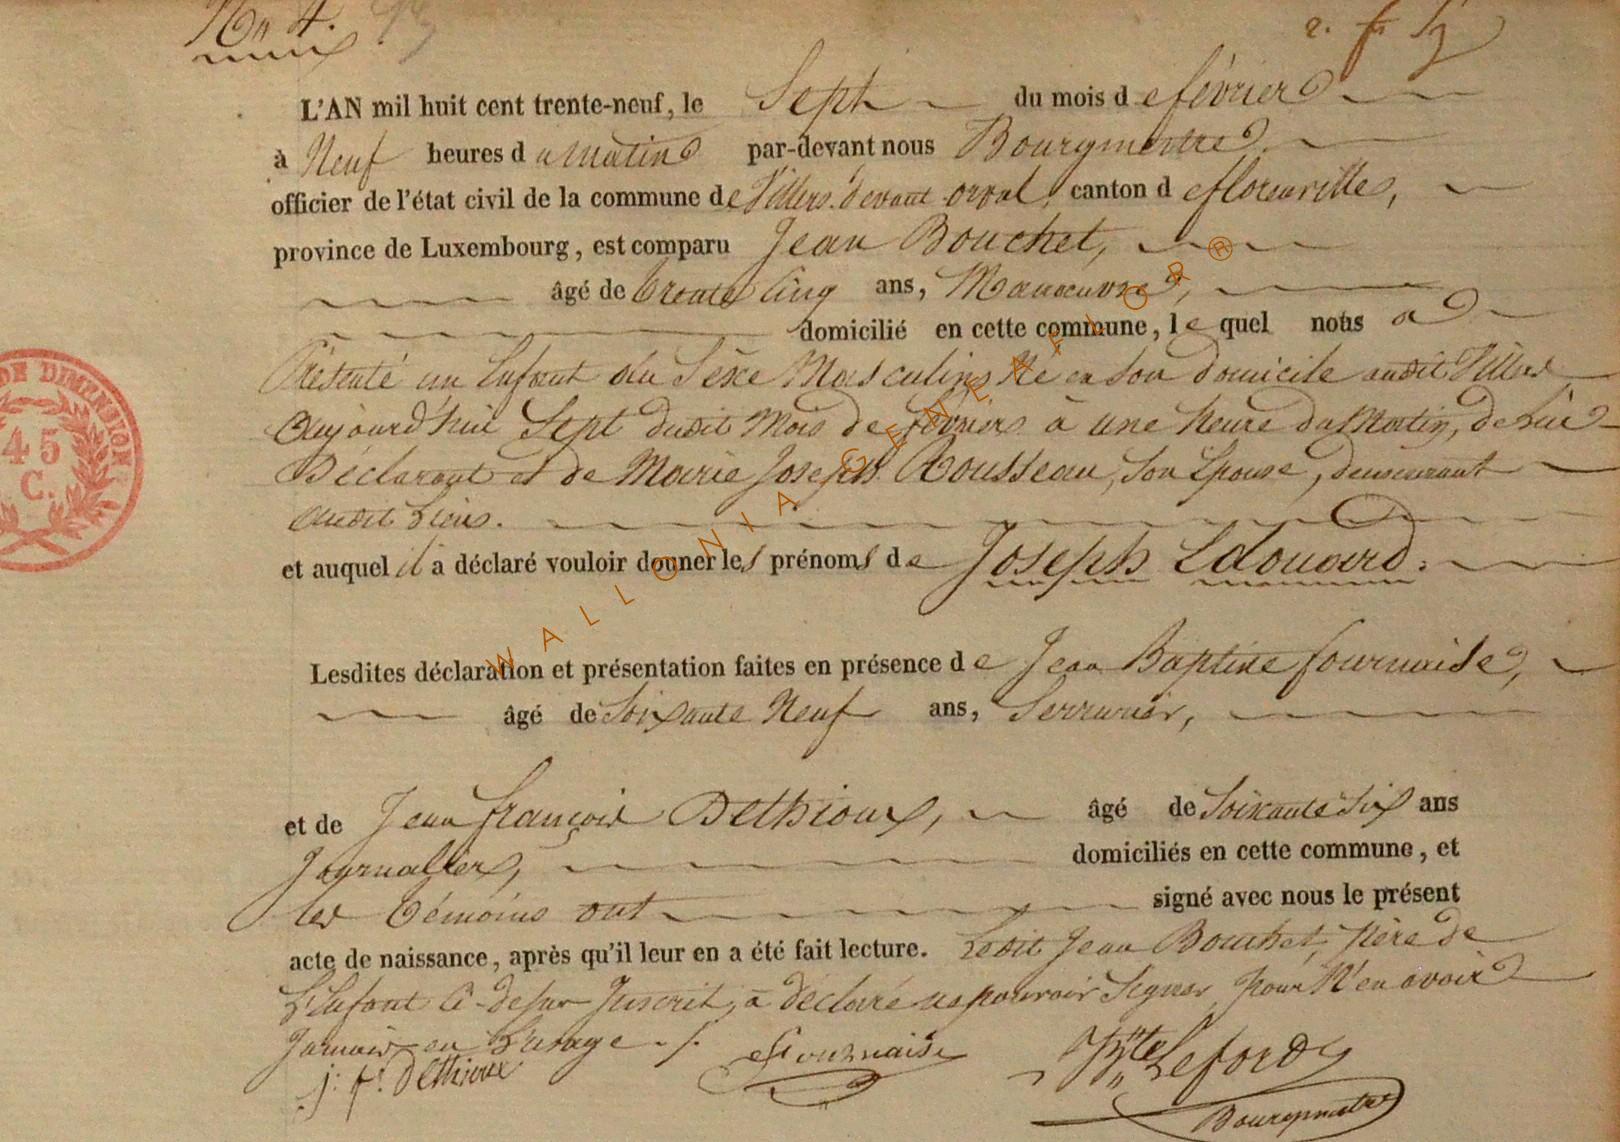 N° 4.
L'AN mil huit cent trente-neuf, le Sept du mois de février
à Neuf heures du matin par-devant nous Bourgmestre
officier de l'état civil de la commune de Villers devant orval, canton de florenville,
province de Luxembourg, est comparu Jean Bouchet,
âgé de trente cinq ans, Manoeuvre,
domicilié en cette commune, le quel nous a
Présenté un Enfant du Séxe Masculin, Né en son domicile audit Villers
Aujourd'hui Sept dudit Mois de février à une heure du Matin, de lui
Déclarant et de Marie Joseph Rousseau, Son Epouse, demeurant
audit Lieu.
et auquel il a déclaré vouloir donner les prénoms de Joseph Edouard.
Lesdites déclaration et présentation faites en présence de Jean Baptiste fournaise,
âgé de Soixante Neuf ans, Serrurier,
et de Jean françois Dethioux, âgé de Soixante Six ans
Journalier, domiciliés en cette commune, et
les témoins ont signé avec nous le présent
acte de naissance, après qu'il leur en a été fait lecture. Ledit Jean Bouchet, Père de
L'Enfant Ci-dessus Inscrit, a déclaré ne pouvoir Signer pour N'en avoir
Jamais eu L'usage ./.
j: f: dethioux Fournaise Bte Lefordy
Bourgmestre
45
C.
WALLONIA GENEAFLOR ®